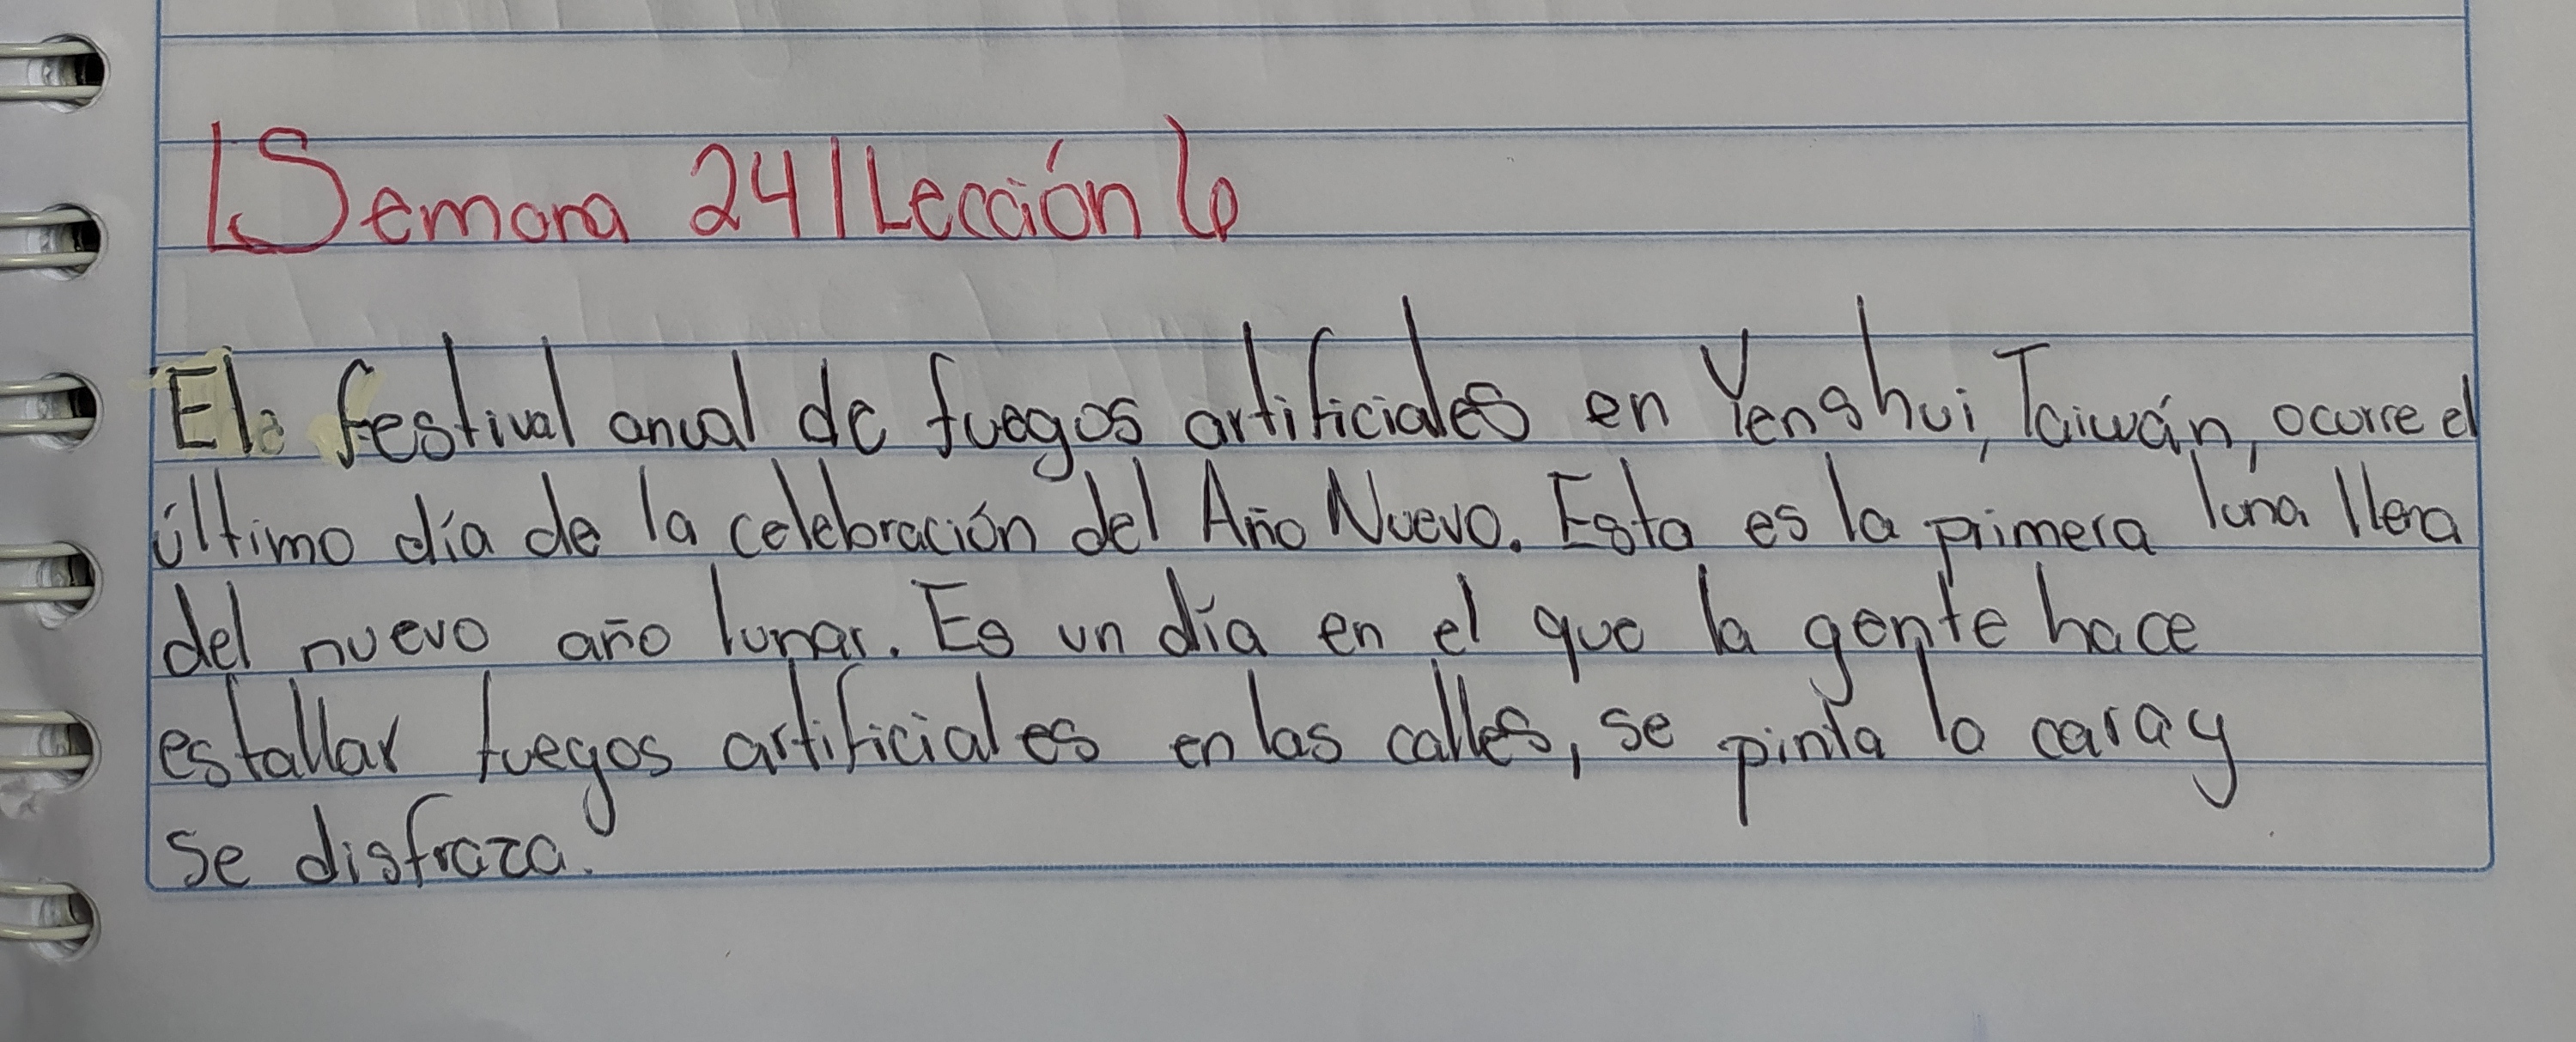 Semana 24 | Lección 6
El festival anual de fuegos artificiales en Yenshui, Taiwán, ocurre el
último día de la celebración del Año Nuevo. Esta es la primera luna llena
del nuevo año lunar. Es un día en el que la gente hace
estallar fuegos artificiales en las calles, se pinta la cara y
se disfraza.